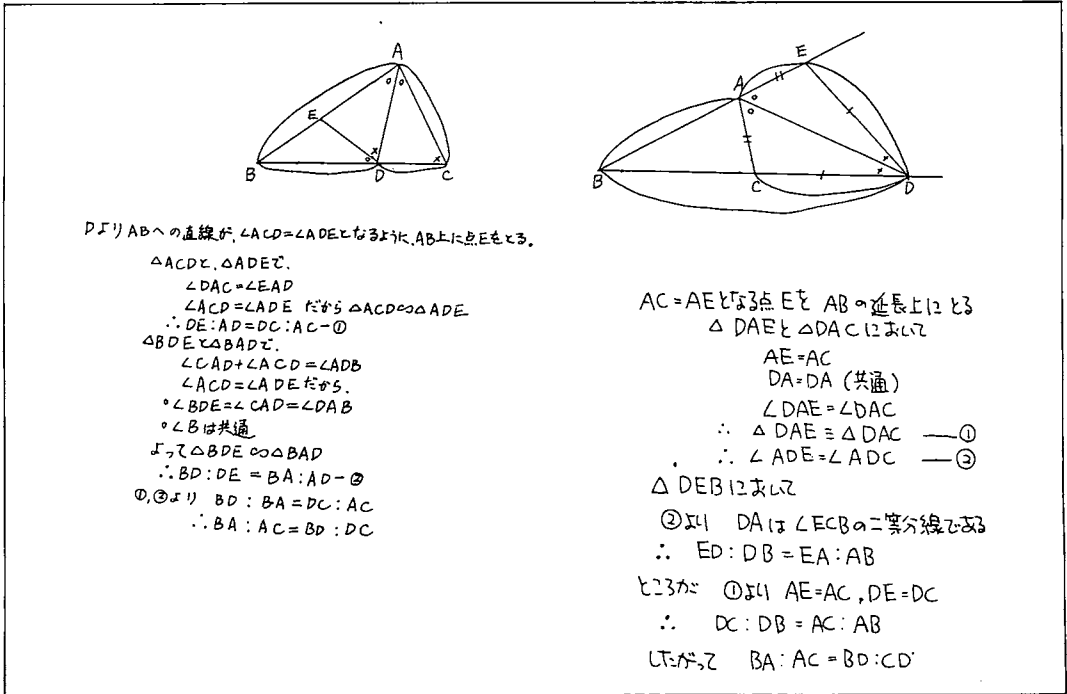 A
E
B
D
C
DよりABへの直線が、∠ACD=∠ADEとなるように、AB上に点Eをとる。
△ACDと、△ADEで、
∠DAC=∠EAD
∠ACD=∠ADE だから △ACD∽△ADE
∴DE:AD=DC:AC-①
△BDEと△BADで、
∠CAD+∠ACD=∠ADB
∠ACD=∠ADEだから、
∘∠BDE=∠CAD=∠DAB
∘∠Bは共通
よって△BDE∽△BAD
∴BD:DE=BA:AD-②
①,②より BD:BA=DC:AC
∴BA:AC=BD:DC
E
A
B
C
D
AC=AEとなる点Eを ABの延長上にとる
△DAEと△DACにおいて
AE=AC
DA=DA (共通)
∠DAE=∠DAC
∴ △DAE≡△DAC ―①
∴ ∠ADE=∠ADC ―②
△DEBにおいて
②より DAは∠ECBの二等分線である
∴ ED:DB=EA:AB
ところが ①より AE=AC,DE=DC
∴ DC:DB=AC:AB
したがって BA:AC=BD:CD